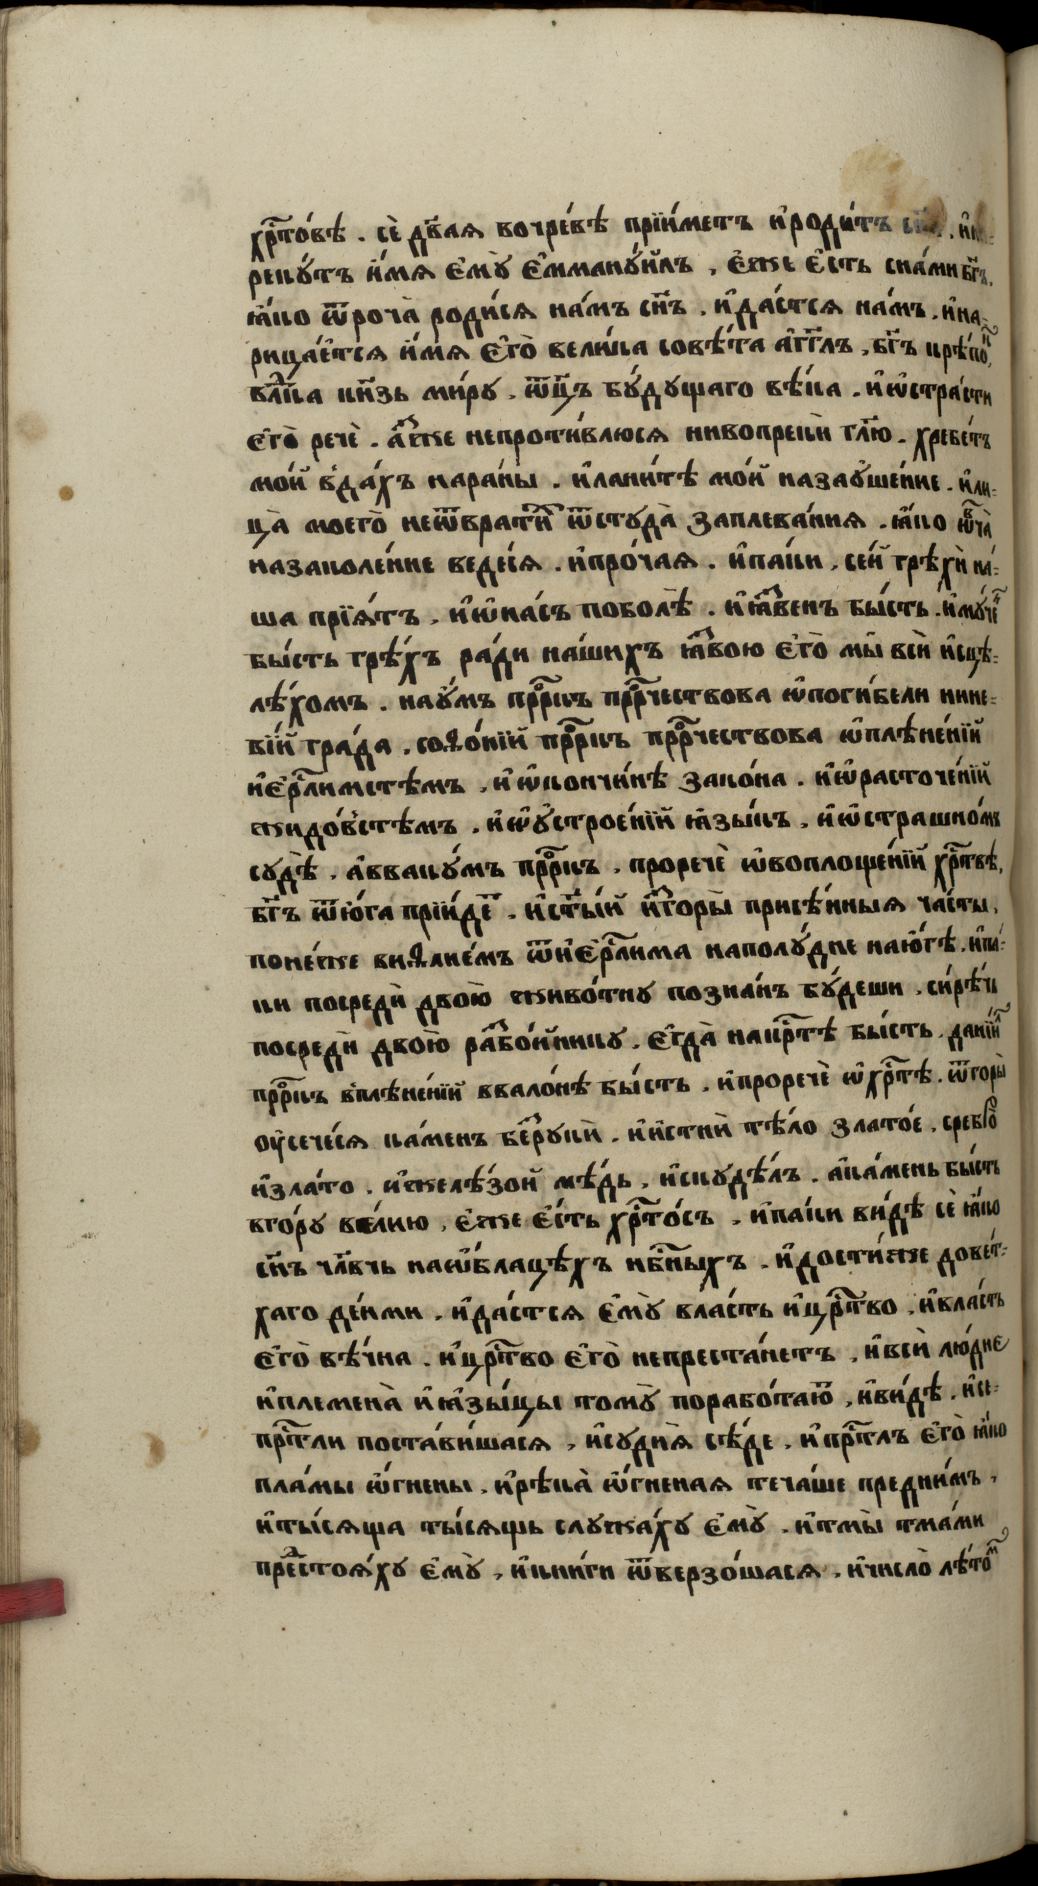 хрⷭ҇то́вѣ . сѐ дв҃ая вочре́вѣ прїи́метъ и҆роди́тъ
реку́тъ и҆́мя є҆мꙋ̀ є҆ммануи́лъ , є҆́же є҆́сть сна́ми бг҃ъ .
ꙗ҆́ко ѿроча̀ роди́ся на́мъ сн҃ъ . и҆да́стся на́мъ . и҆на-
рица́єтся и҆́мя є҆го̀ вели́ка совѣ́та а҆гг҃лъ , бг҃ъ крѣ́пок҃ ,
влⷣка кн҃зь ми́ру . ѿц҃ъ бу́дущаго вѣ́ка . и҆ѡ҆стра́сти
є҆го̀ речѐ . а҆́зⷤе непроти́влюся нивопрекѝ гл҃ю . хребе́тъ
мо́й вда́хъ нара́ны . и҆лани́тѣ мо́й назауше́ние . и҆ли-
ца̀ моего̀ неѿврати́хⷯ ѿстуда̀ заплева́ния . ꙗ҆́ко ѻ҆вⷡча̀
назаколе́ние веде́ся . и҆про́чая . и҆па́ки , се́й грѣхѝ на́-
ша прїя́тъ , и҆ѡ҆на́съ поболѣ̀ . и҆ꙗ҆́звенъ бы́сть . и҆му́чеⷩ҇
бы́сть грѣ́хъ ра́ди на́шихъ ꙗ҆́звою є҆го̀ мы̀ всѝ и҆сцѣ-
лѣ́хомъ . нау́мъ прⷪ҇ркъ прⷪ҇рчествова ѡ҆поги́бели нине-
ві́й гра́да . соѳо́нїй прⷪ҇ркъ прⷪ҇рчествова ѡ҆плѣне́нїй
и҆єрⷭ҇лимстѣмъ , и҆ѡ҆кончи́нѣ зако́на . и҆ѡ҆расточе́нїй
жидо́встѣмъ . и҆ѡ҆у҆строе́нїй ꙗ҆зы́къ , и҆ѡ҆стра́шномъ
судѣ̀ . а҆вваку́мъ прⷪ҇ркъ , проречѐ ѡ҆воплоще́нїй хрⷭ҇твѣ ,
бг҃ъ ѿю́га прїи́деⷮ . и҆ст҃ы́й и҆згоры̀ присѣ́нныя ча́сты ,
поне́же виѳлие́мъ ѿи҆єрⷭ҇лима наполу́дне наю́гѣ . и҆па́-
ки посредѝ двою̀ живо́тну позна́нъ бу́деши . си́рѣчь
посредѝ двою̀ разбо́йнику . є҆гда̀ накрⷭ҇тѣ бы́сть . данїи́лⷧ
прⷪ҇ркъ вплѣне́нїй ввало́нѣ бы́сть . и҆проречѐ ѡ҆хрⷭ҇тѣ . ѿгоры̀
оу҆сече́ся ка́мень безрукѝ . и҆и҆стнѝ тѣ́ло злато́е . сребро̀
и҆зла́то . и҆желѣ́зой мѣ́дь , и҆скудѣ́лъ . а҆ка́мень бы́сть
вго́ру ве́лию , є҆́же є҆́сть хрⷭ҇то́съ . и҆па́ки ви́дѣ сѐ ꙗ҆́ко
сн҃ъ чл҃вчь наѡ҆́блацѣхъ нбⷭ҇ныхъ . и҆дости́же дове́т-
хаго де́нми . и҆да́стся є҆мꙋ̀ вла́сть и҆црⷭ҇тво , и҆вла́сть
є҆го̀ вѣ́чна . и҆црⷭ҇тво є҆го̀ непреста́нетъ , и҆всѝ лю́дие
и҆племена̀ и҆ꙗ҆зы́цы тому̀ порабо́таюⷮ , и҆ви́дѣ . и҆се-
прⷭ҇тли поста́вишася , и҆судия̀ сѣ́де , и҆прⷭ҇тлъ є҆го̀ ꙗ҆́ко
пла́мы ѻ҆́гнены . и҆рѣка̀ ѻ҆́гненая теча́ше предни́мъ ,
и҆ты́сяща ты́сящь служа́ху є҆мꙋ̀ . и҆тмы̀ тма́ми
предстоя́ху є҆мꙋ̀ , и҆кни́ги ѿверзо́шася , и҆число̀ лѣ́томⷨ